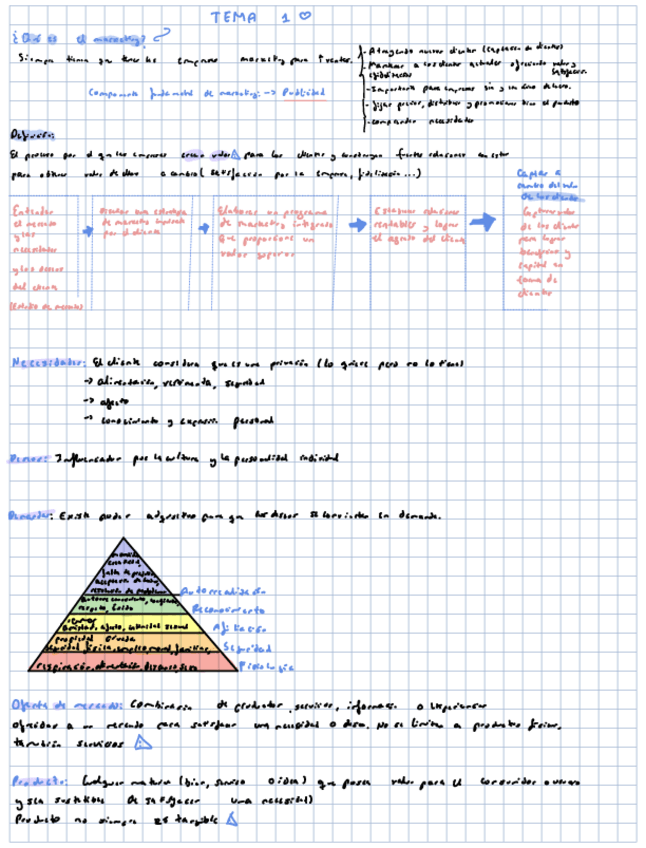 TEMA 1 ♡
¿Qué es el marketing?
Siempre tiene que tener las empresas marketing para ↑ ventas.
- Atrayendo nuevos clientes (captación de clientes)
- Mantener a los clientes actuales ofreciendo valor y satisfacc.
fidelizarlos
- Importante para empresas sin y con ánimo de lucro.
- Fijar precios, distribuir y promocionar bien el producto
- comprender necesidades
Componente fundamental de marketing: → Publicidad
Definición:
El proceso por el que las empresas crean valor ⚠ para los clientes y construyen fuertes relaciones con estos
para obtener valor de ellos a cambio (satisfacción por la compra, fidelización...)
Captar a
cambio del valor
de los clientes
Entender
el mercado
y las
necesidades
y los deseos
del cliente
(Estudio de mercado)
Diseñar una estrategia
de marketing impulsada
por el cliente
Elaborar un programa
de marketing integrado
Que proporcione un
valor superior
Establecer relaciones
rentables y lograr
el agrado del cliente
Captar valor
de los clientes
para lograr
beneficios y
capital en
forma de
clientes
Necesidades: El cliente considera que es una privación (lo quiere pero no lo tiene)
→ alimentación, vestimenta, seguridad
→ afecto
→ conocimiento y expresión personal
Deseos: Influenciados por la cultura y la personalidad individual
Demandas: Existe poder adquisitivo para que los deseos se conviertan en demanda.
moralidad
creatividad,
falta de prejuicios,
aceptación de hechos,
resolución de problemas
Autorrealización
Autoreconocimiento, confianza,
respeto, éxito
Reconocimiento
amistad, afecto, intimidad sexual
Afiliación
propiedad privada
seguridad física, empleo, moral, familiar,
Seguridad
respiración, alimentación, descanso, sexo
Fisiología
Oferta de mercado: Combinación de productos, servicios, información o experiencias
ofrecidas a un mercado para satisfacer una necesidad o deseo. No se limita a productos físicos,
también servicios ⚠
Producto: Cualquier material (bien, servicio o idea) que posea valor para el consumidor o usuario
y sea susceptible de satisfacer una necesidad)
Producto no siempre es tangible ⚠